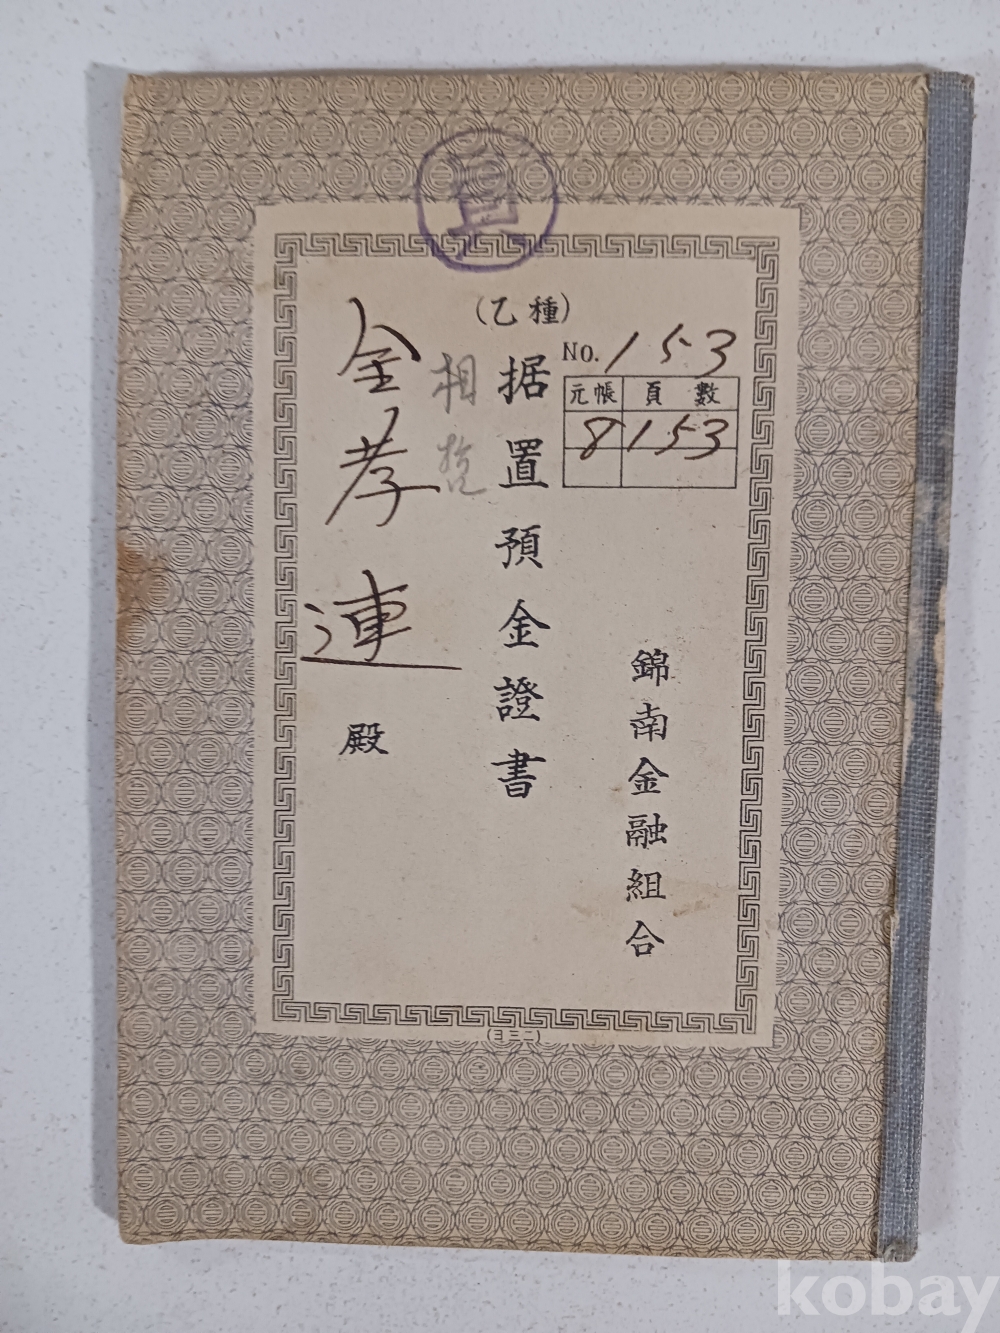 員
(乙種)
No. 153
元帳 頁數
8 153
錦南金融組合
据置預金證書
相
金孝連 殿
(ヨ三二)
kobay